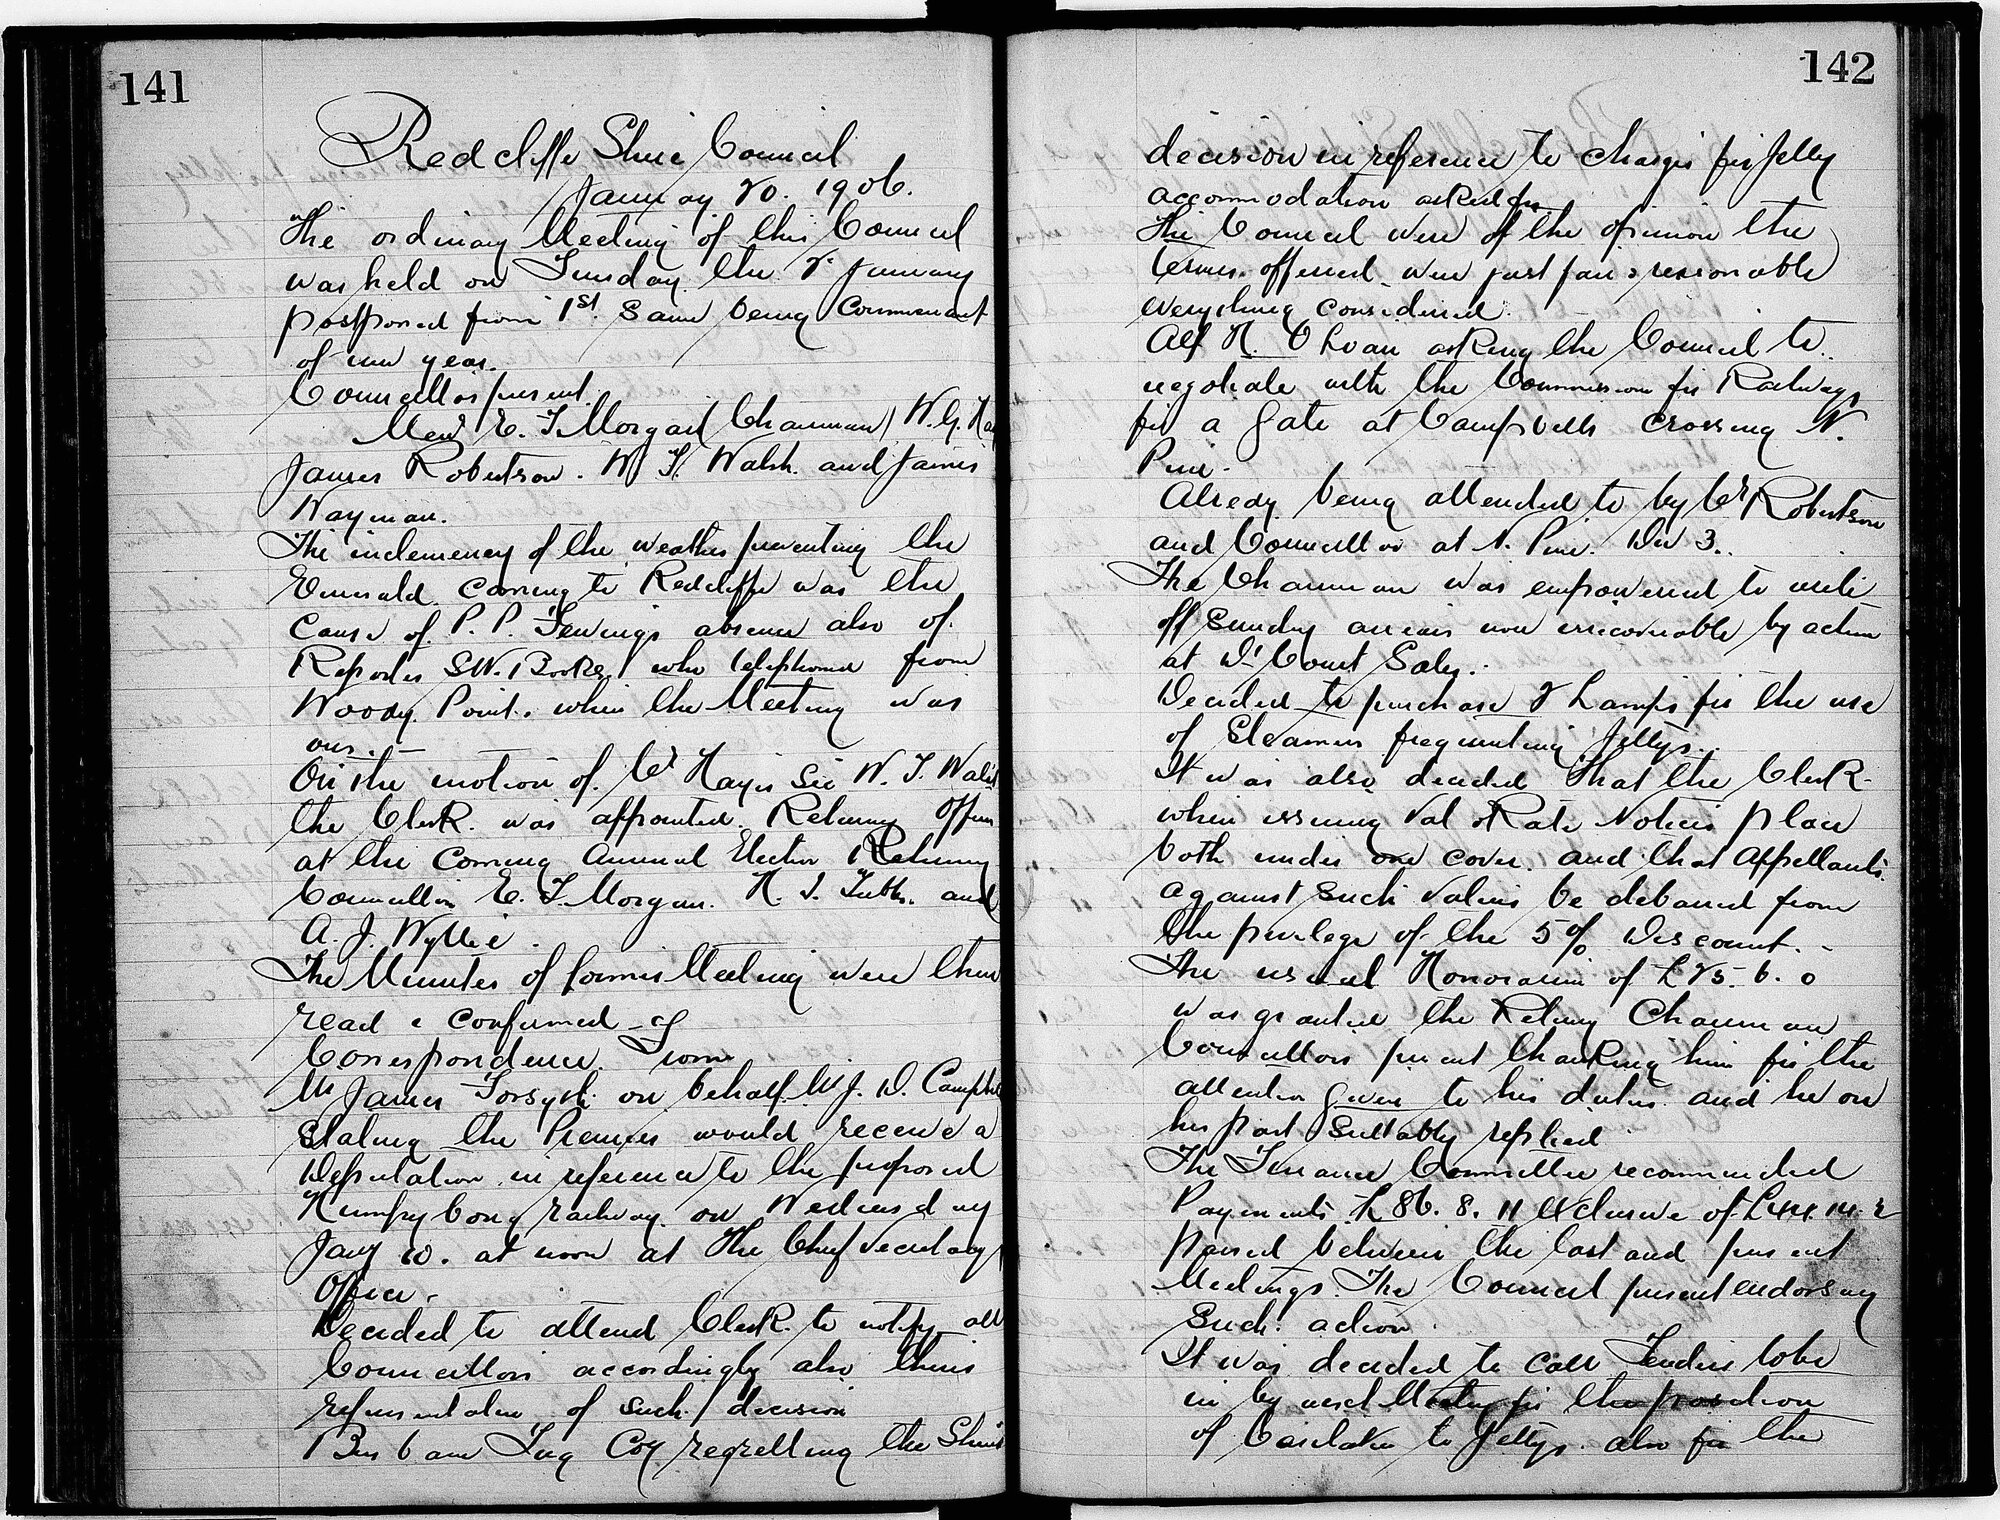 141
Redcliffe Shire Council
January 20. 1906.
The ordinary Meeting of this Council
was held on Tuesday the 2nd January
postponed from 1st. Same being Commencmt
of new year.
Councillors present.
Mess E. T. Morgan (Chairman) W. G. Hay
James Robertson. W. T. Walsh. and James
Wayman.
The inclemency of the weather preventing the
Emerald. coming to Redcliffe was the
Cause of. P. P. absence also of.
Reporter S.W. Brooks, who telephoned from
Woody. Point. when the Meeting was
over. —
On the motion of. Cr Hayes Sec W. T. Walsh
the Clerk. was appointed. Returning Officer
at the Coming Annual Election Retiring
Councillors E. T. Morgan. H. J. Tubbs. and
A. J. Wyllie.
The Minutes of former Meeting were then
read & confirmed
Correspondence. From
Mr James Forsyth. on behalf. Mr J. D. Campbell
Stating the Premier would receive a
Deputation in reference to the proposed
Humpybong railway. on Wednesday
Jany 10. at noon at The Chief Secretary
Office.
Decided to attend Clerk. to notify all
Councillors accordingly also their
representative of such decision
Brisbane Tug Coy regretting the Shires
142
decision in reference to charges for Jetty
accommodation asked for
The Council were of the opinion the
terms. offered were just fair & reasonable
everything considered.
Alf H. asking the Council to
negotiate with the Commission for Railways
for a gate at Campbells Crossing N.
Pine.
Alredy being attended to by Cr Robertson
and Councillors at N. Pine. Div 3.
The Chairman was empowered to write
off Sundry arrears now irrecoverable by action
at D. Court Sales.
Decided to purchase 2 Lamps for the use
of Steamers frequenting Jettys.
It was also decided that the Clerk
when issuing Val & Rate Notices place
both under one cover. and that Appellants.
against such values be debarred from
the privilege of the 5% Discount. -
The usual Honorarium of £25. 0. 0
was granted the Retiring Chairman
Councillors present thanking him for the
attention given to his duties. and he on
his part suitably replied.
The Finance Committee recommended
Payments £86. 8. 11 exclusive of £44. 14. 2
passed between the last and present
Meetings. The Council present endorsing
such action.
It was decided to call Tenders to be
in by next Meeting for the position
of Caretaker to Jettys. also for the